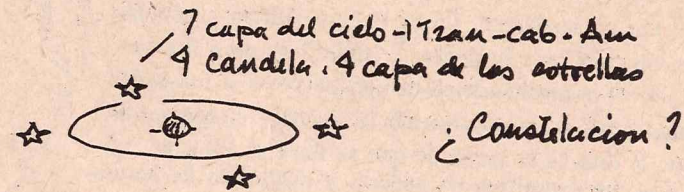 7 capa del cielo - Itzan - cab - Am
4 candela. 4 capa de las estrellas
¿Constelacion?